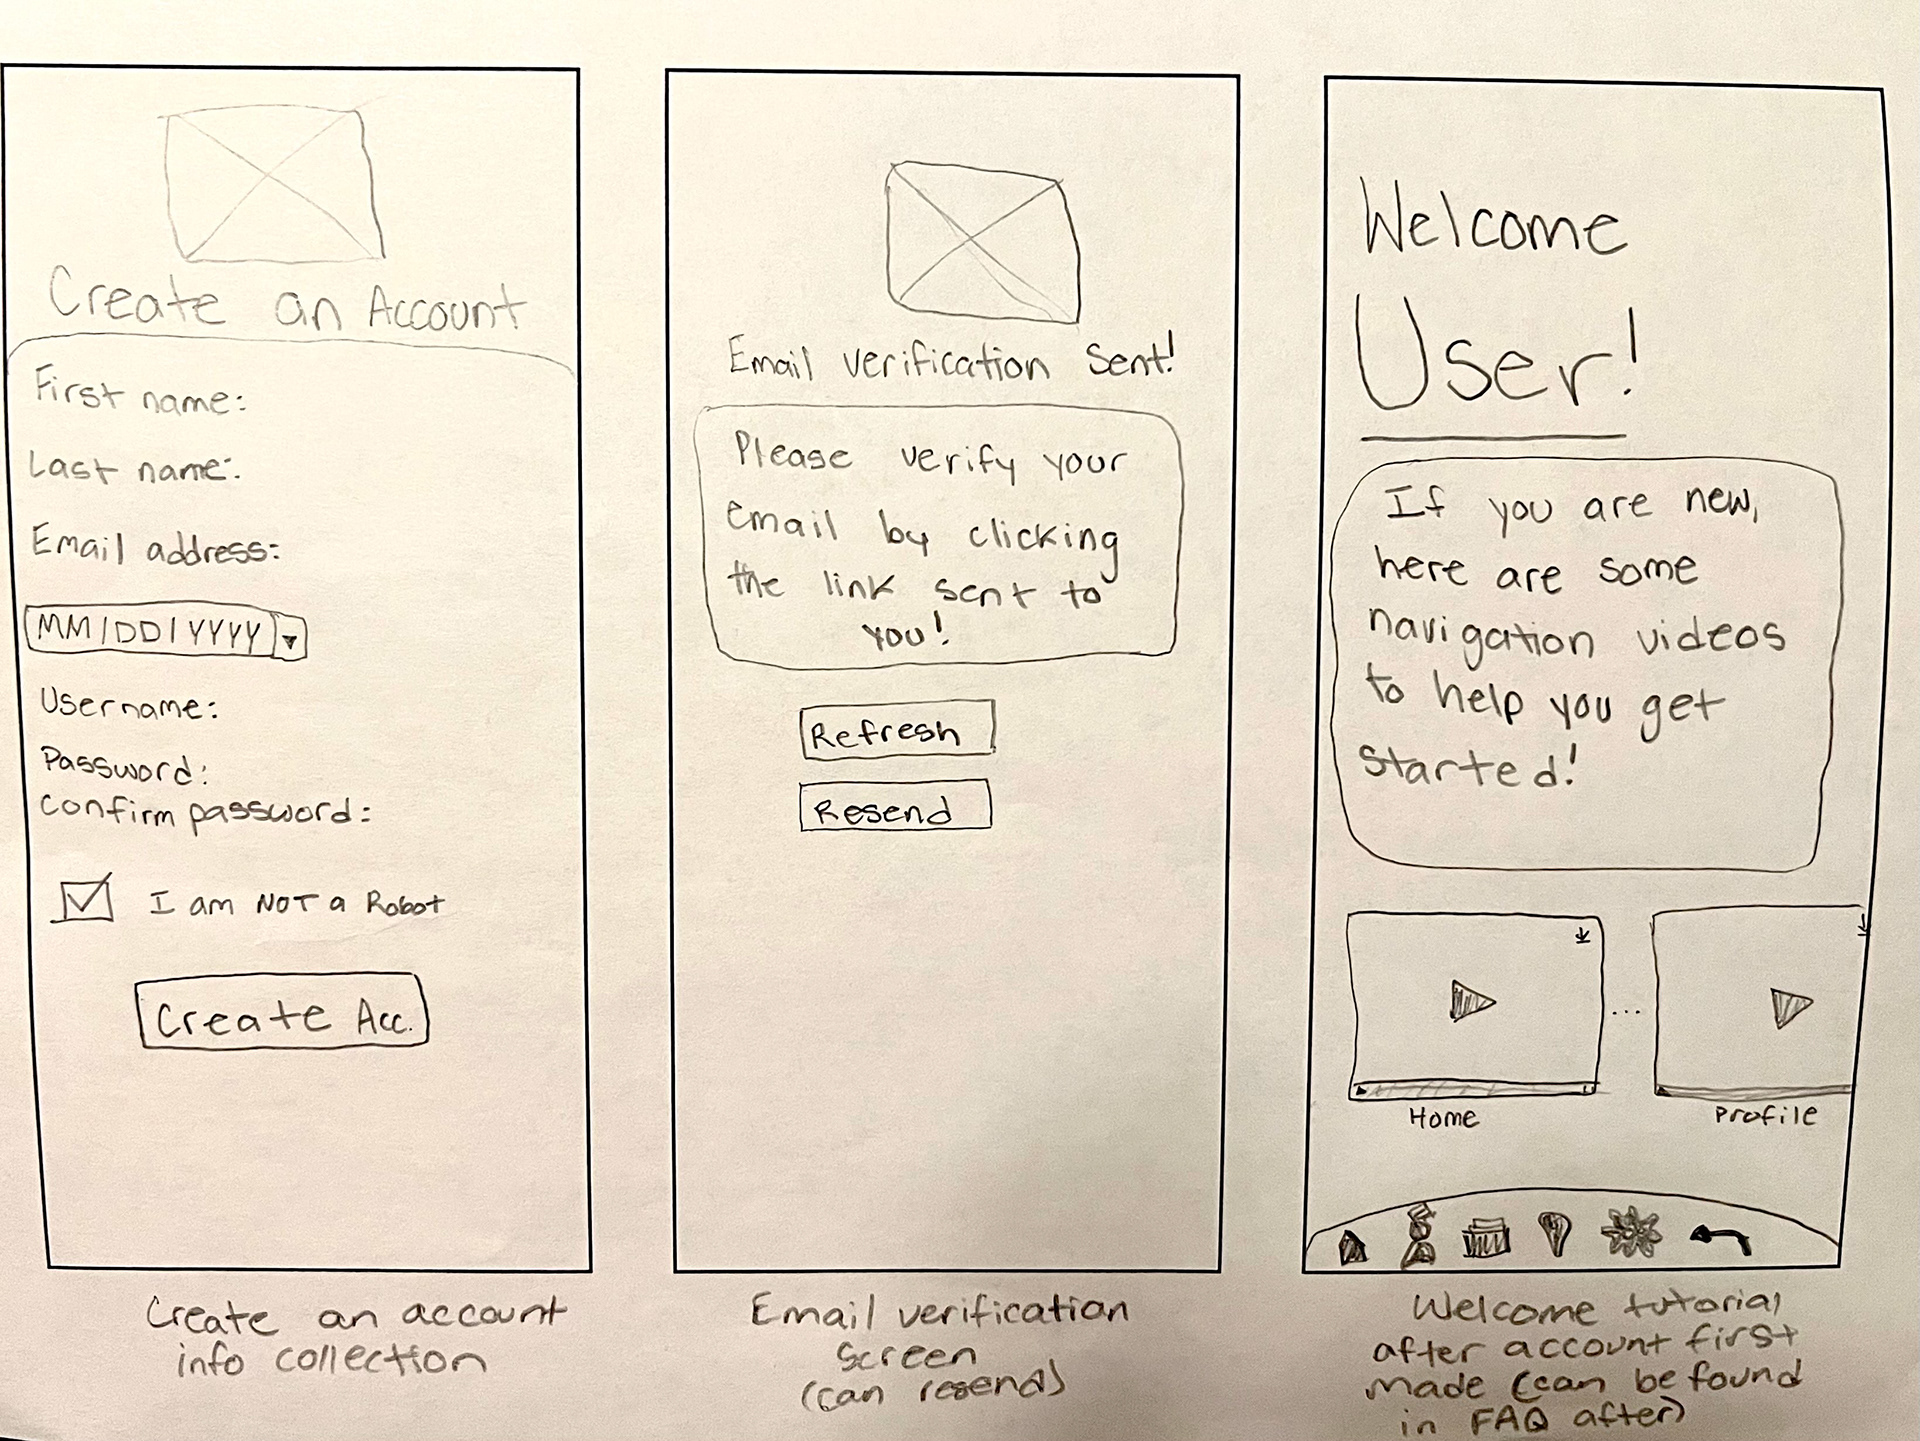 Create an Account
First name:
Last name:
Email address:
MM/DD/YYYY
Username:
Password:
Confirm password:
I am NOT a Robot
Create Acc.
Create an account
info collection
Email verification Sent!
Please verify your
email by clicking
the link sent to
you!
Refresh
Resend
Email verification
screen
(can resend)
Welcome
User!
If you are new,
here are some
navigation videos
to help you get
started!
...
Home
Profile
Welcome tutorial
after account first
made (can be found
in FAQ after)